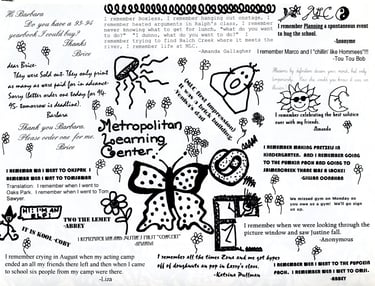 Hi Barbara
Do you have a 93-94
yearbook I could buy?
Thanks
Brice
dear Brice.
They were Sold out. They only print
as many as were paid for in advance.
Sorry (letter order one today for 94-
95- tomorrow is deadline).
Barbara
Thank you Barbara.
Please order one for me.
Brice
I remember boxless, I remember hanging out onstage, I
remember heated arguments in Ralph's class, I remember
never knowing what to get for lunch, "what do you want to
do?" "I dunno, what do you want to do?" I
remember trying to find Ralph Creek where it meets the
river, I remember life at MLC.
-Amanda Gallagher
MLC
I remember Planning a spontaneous event
to hug the school.
-Anonyme
I remember Marco and I "chillin' like Hommees"!!!!
-Tou Tou Bob
I remember celebrating the best solstice
ever with my friends.
Amanda
Metropolitan
Learning
Center!
I REMEMBER WEN I WENT TO OKSPRK I
REMEMBER WEN I WENT TO TOMSAWYAR
Translation: I remember when I went to
Oaks Park. I remember when I went to Tom
Sawyer.
IT IS KOOL COBY
TWO THE LEMET
-ABBEY
I REMEMBER MAKING PRETZELS IN
KINDERGARTEN. AND I REMEMBER GOING
TO THE PUMPKIN PACH AND GOING TO
THE
-GILLIAN
We missed gym on Monday so
can we use gym? We'll go sign
us up.
I remember when we were looking through the
picture window and saw justine fall.
-Anonymous
I remember crying in August when my acting camp
ended an all my friends there left and then when I came
to school six people from my camp were there.
-Liza
I remember all the times Zona and we got hyper
off of doughnuts an pop in Larry's class.
-Katrina Pullman
I REMEMBER WEN I WENT TO THE PUMPCIN
PACH. I REMEMBER WEN I WENT TO OMSI.
-ABBEY